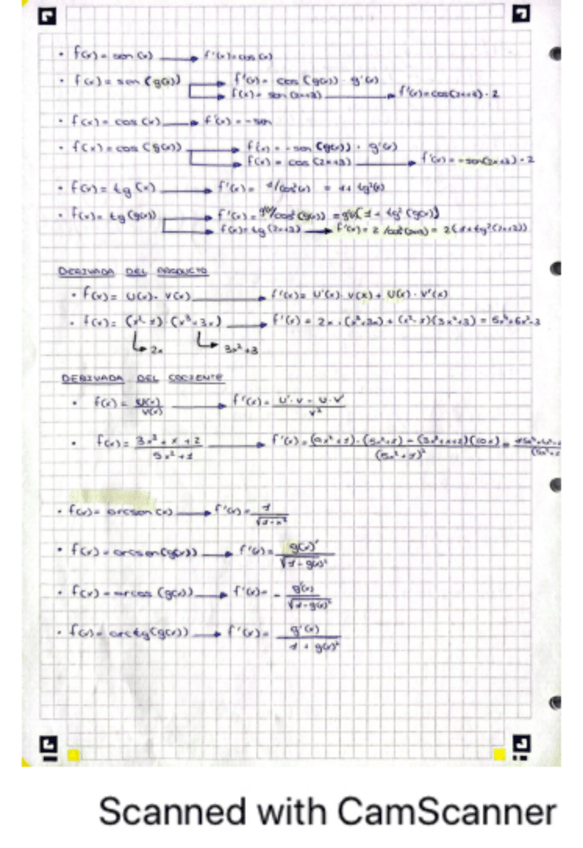 • f(x) = sen (x) → f'(x) = cos (x)
• f(x) = sen (g(x)) → f'(x) = cos (g(x)) · g'(x)
→ f(x) = sen (2x+3) → f'(x) = cos(2x+3) · 2
• f(x) = cos (x) → f'(x) = - sen
• f(x) = cos (g(x)) → f(x) = - sen (g(x)) · g'(x)
→ f(x) = cos (2x+3) → f'(x) = -sen(2x+3) · 2
• f(x) = tg (x) → f'(x) = 1/cos²(x) = 1+ tg²(x)
• f(x) = tg (g(x)) → f'(x) = g'(x)/cos² (g(x)) = g'(x) (1 + tg² (g(x)))
→ f(x) = tg (2x+3) → f'(x) = 2 /cos² (2x+3) = 2 (1+tg² (2x+3))
DERIVADA DEL PRODUCTO
• f(x) = U(x) · V(x) → f'(x) = U'(x) · V(x) + U(x) · V'(x)
• f(x) = (x²-1) · (x³+3x) → f'(x) = 2x · (x³+3x) + (x²-1)(3x²+3) = 5x⁴+6x²-3
2x 3x²+3
DERIVADA DEL COCIENTE
• f(x) = U(x)/V(x) → f'(x) = U'·V - U·V'/V²
• f(x) = 3x³ + x + 2/5x²+1 → f'(x) = (9x²+1) · (5x²+1) - (3x³+x+2)(10x)/(5x²+1)² =
• f(x) = arcsen (x) → f'(x) = 1/√1-x²
• f(x) = arcsen(g(x)) → f'(x) = g(x)'/√1-g(x)²
• f(x) = arcos (g(x)) → f'(x) = - g'(x)/√1-g(x)²
• f(x) = arctg(g(x)) → f'(x) = g'(x)/1 + g(x)²
Scanned with CamScanner